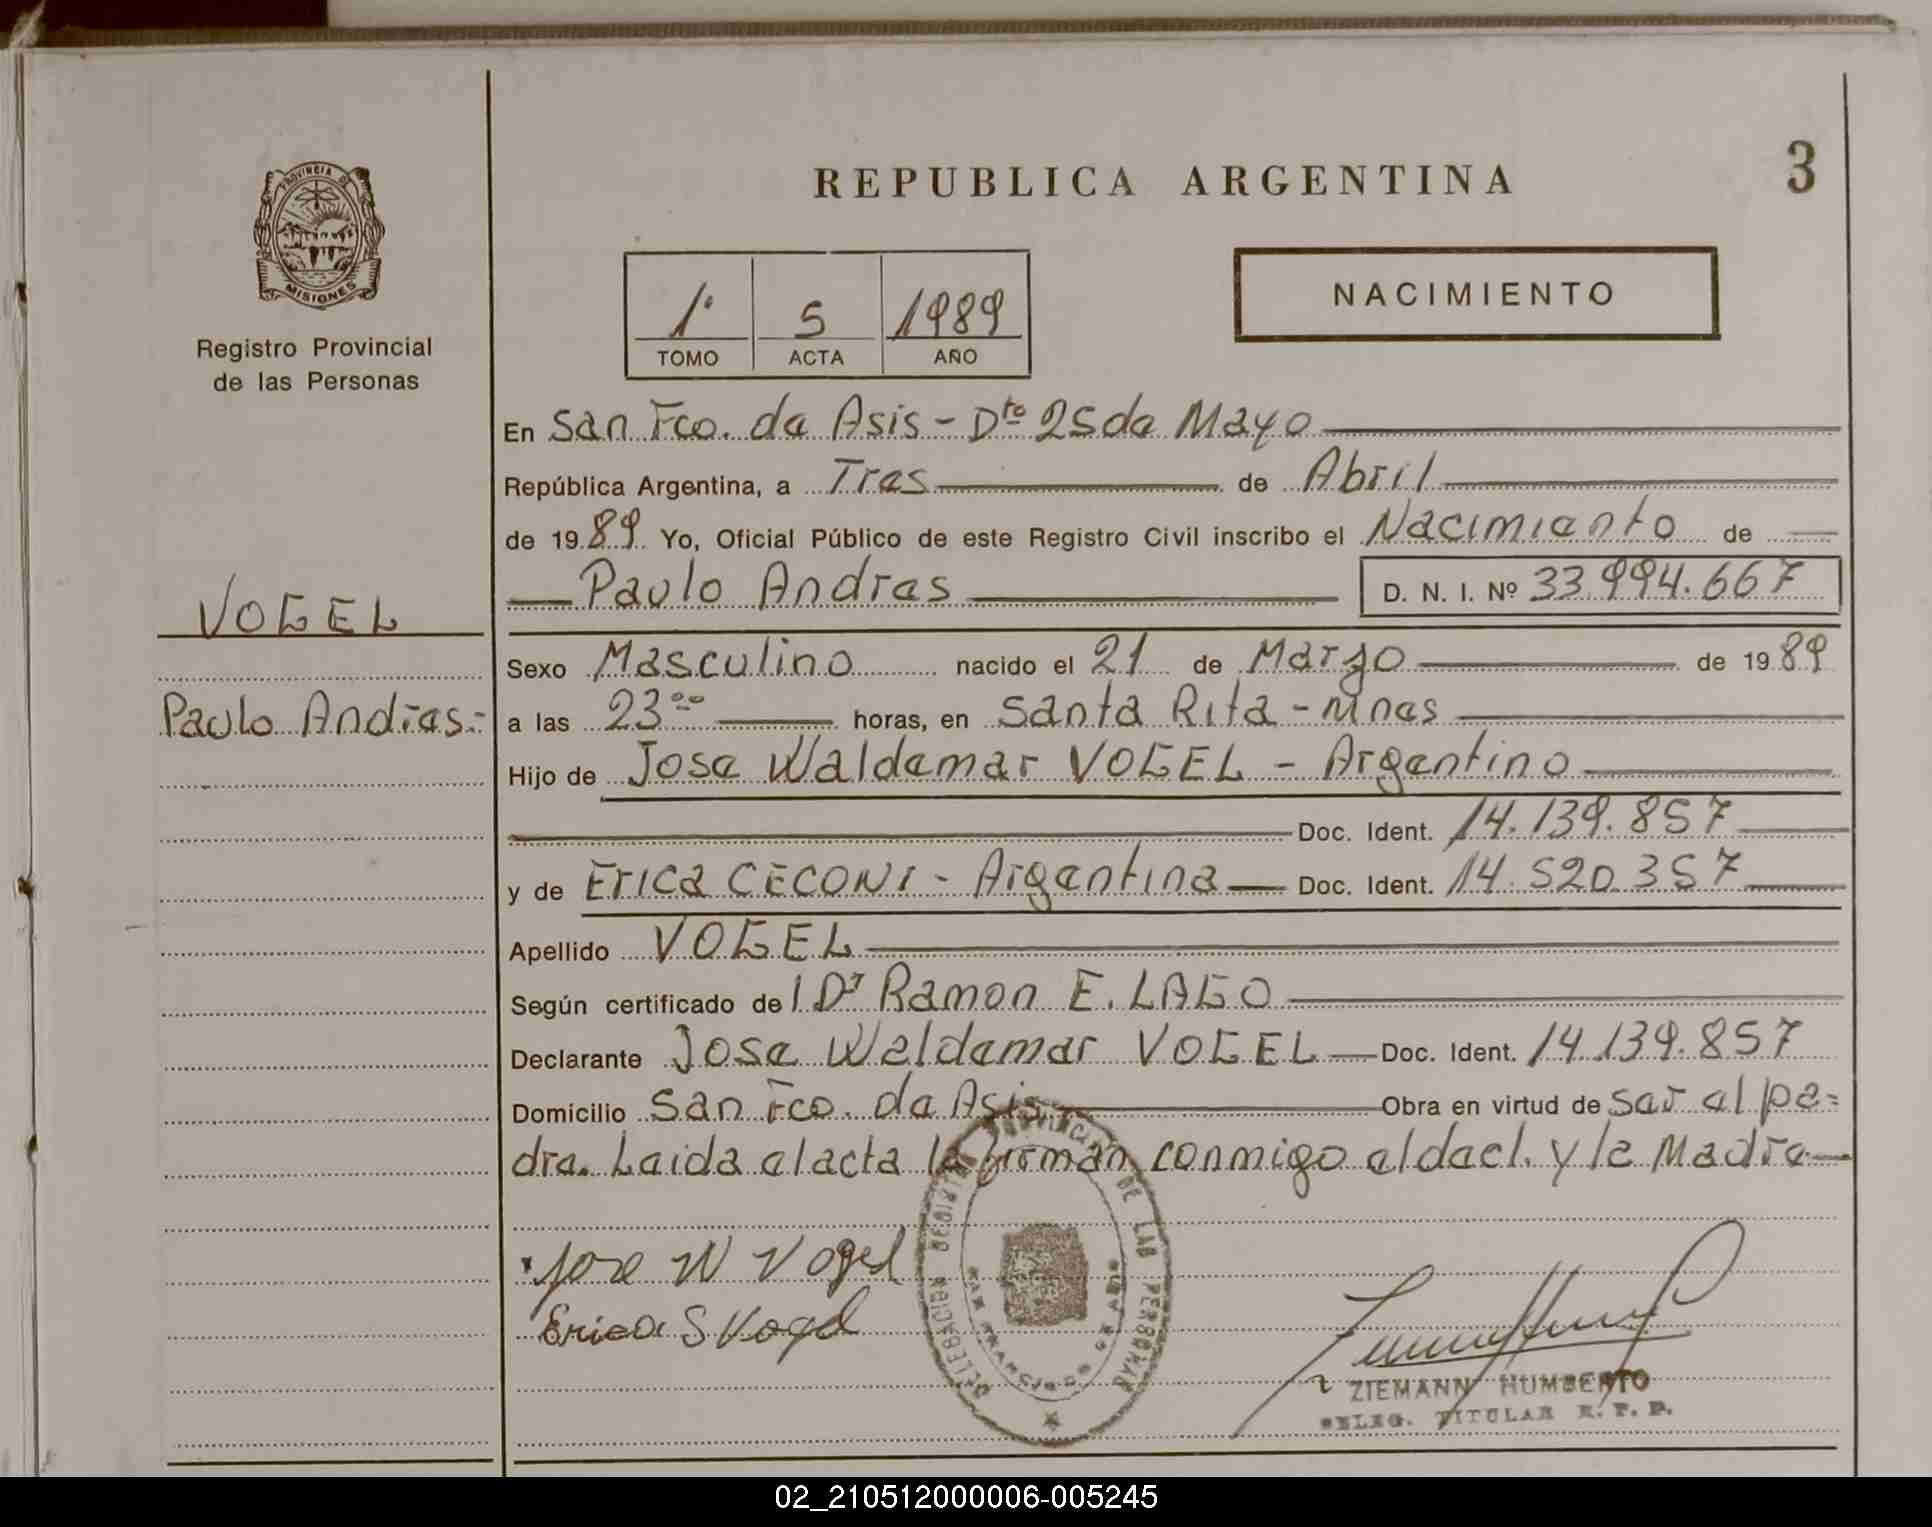 PROVINCIA DE
MISIONES
Registro Provincial
de las Personas
REPUBLICA ARGENTINA
3
1º 5 1989
TOMO ACTA AÑO
NACIMIENTO
En San Fco. de Asis - Dto 25 de Mayo
República Argentina, a Tres de Abril
de 1989 Yo, Oficial Público de este Registro Civil inscribo el Nacimiento de
Paulo Andres D. N. I. Nº 33.994.667
VOGEL
Paulo Andres.-
Sexo Masculino nacido el 21 de Marzo de 1989
a las 23 00 horas, en Santa Rita - Mnes
Hijo de Jose Waldemar VOGEL - Argentino
Doc. Ident. 14.139.857
y de Erica CECONI - Argentina Doc. Ident. 14.520.357
Apellido VOGEL
Según certificado del Dr Ramon E. LAGO
Declarante Jose Waldemar VOGEL Doc. Ident. 14.139.857
Domicilio San Fco. de Asis Obra en virtud de ser el pa-
dre. Leida el acta la firman conmigo el decl. y la Madre
Jose W Vogel
Erica S Vogel
DELEGACION REGISTRO PROVINCIAL DE LAS PERSONAS
ZIEMANN HUMBERTO
DELEG. TITULAR R. P. P.
02_210512000006-005245